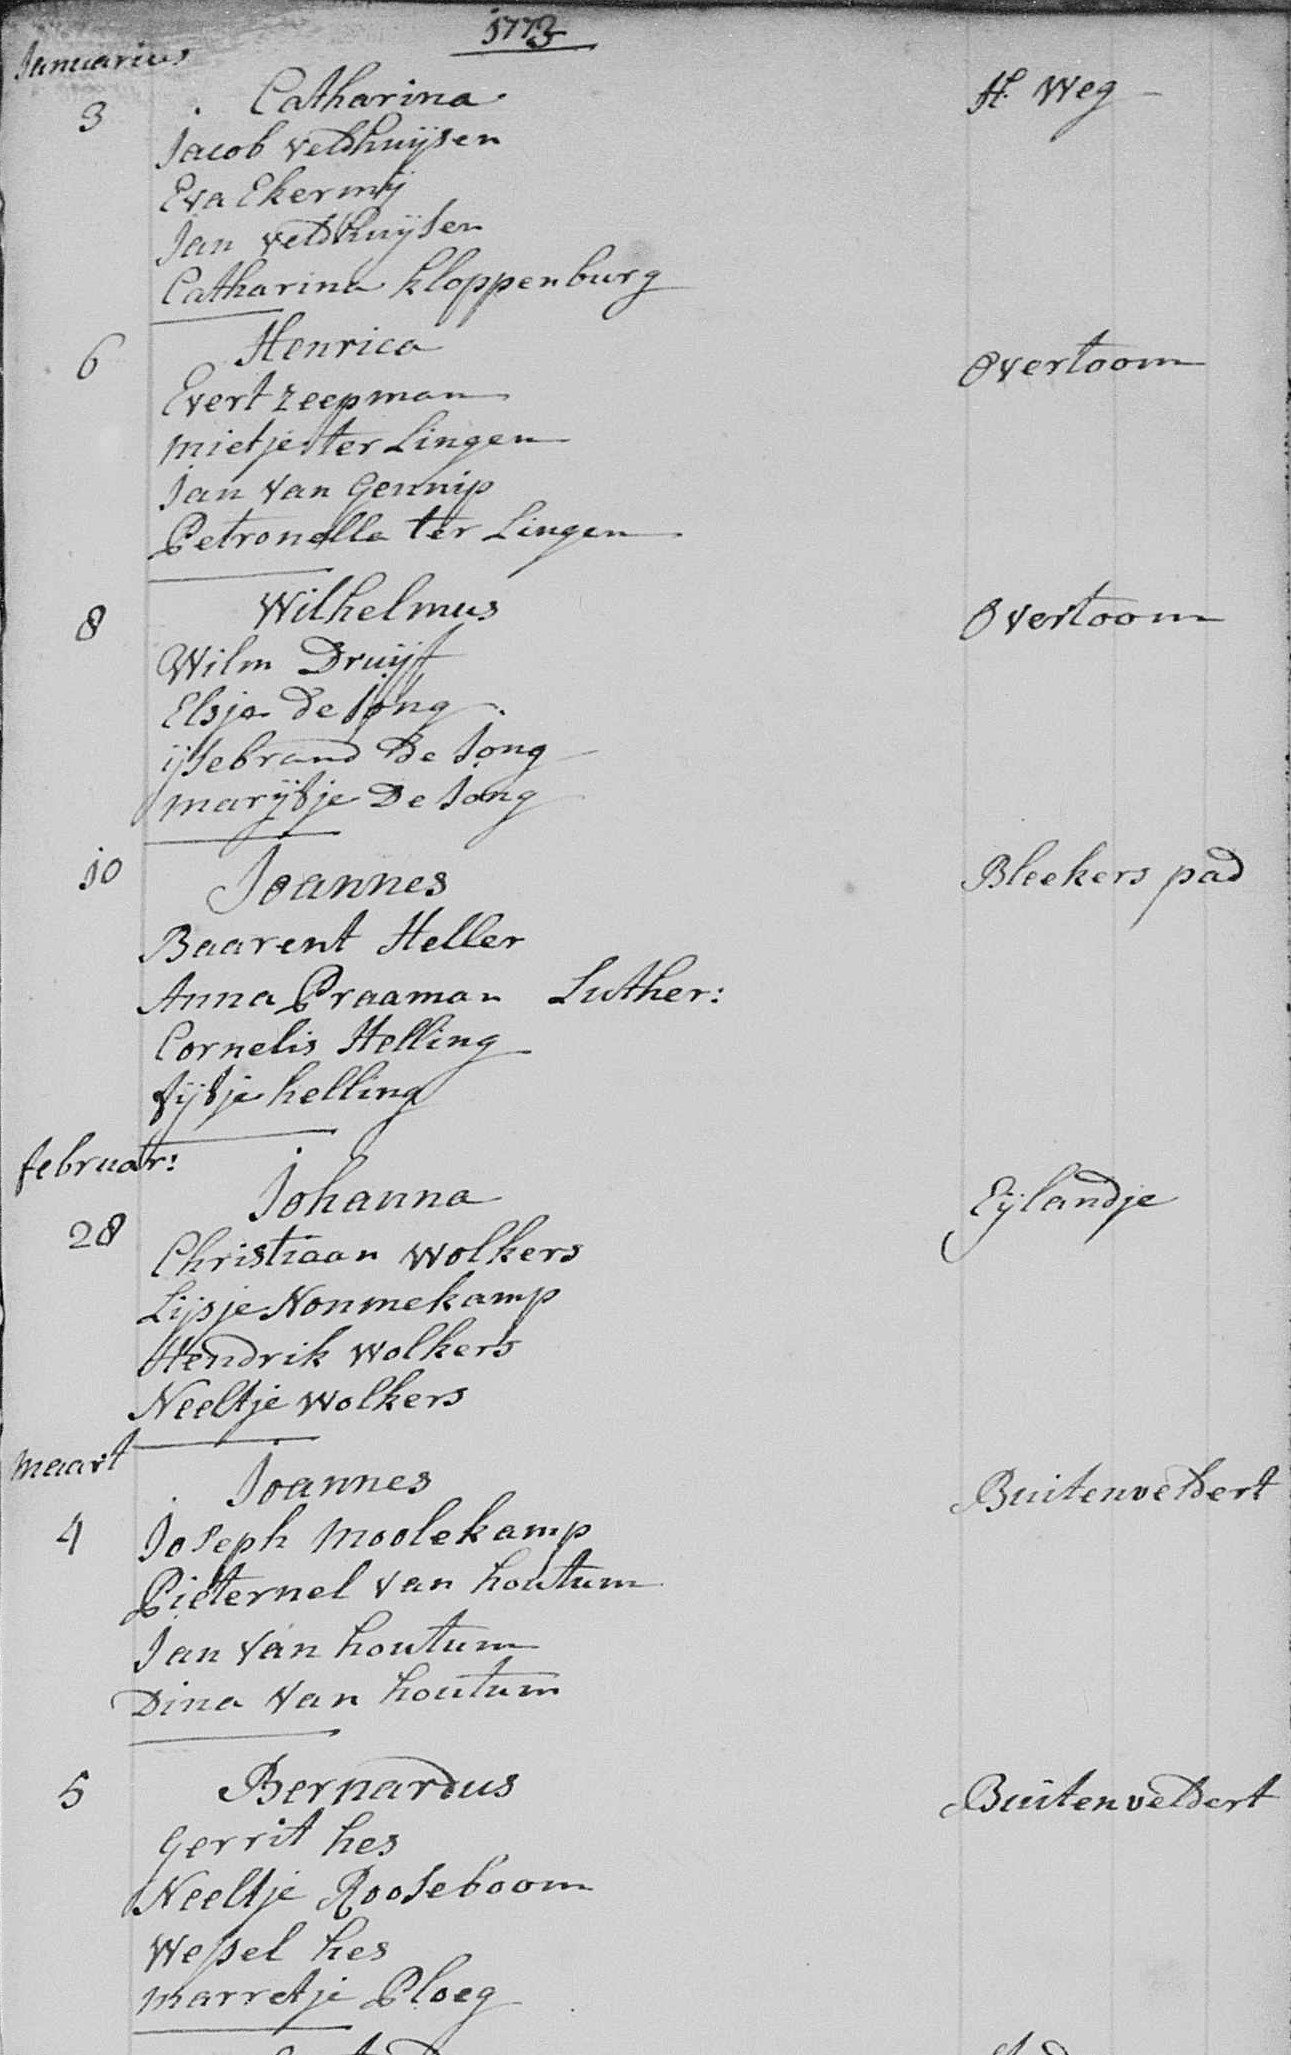 1773
Januarius
3 Catharina H. Weg
Jacob veldhuijsen
Eva Ekermij
Jan veldhuijsen
Catharina kloppenburg
6 Henrica Overtoom
Evert zeepman
mietje ter Lingen
Jan van Gennip
Petronella ter Lingen
8 Wilhelmus Overtoom
Wilm Druijf
Elsje De Jong
ijsebrand De Jong
marijtje De Jong
10 Joannes Bleekers pad
Baarent Heller
Anna Praaman Luther:
Cornelis Helling
fijtje helling
februar:
28 Johanna Eijlandje
Christiaan Wolkers
Lijsje Nonmekamp
Hendrik Wolkers
Neeltje Wolkers
maart
4 Joannes Buitenveldert
Joseph moolekamp
Pieternel van houtum
Jan van houtum
Dina van houtum
5 Bernardus Buitenveldert
Gerrit hes
Neeltje Rooseboom
Wessel hes
marretje Ploeg